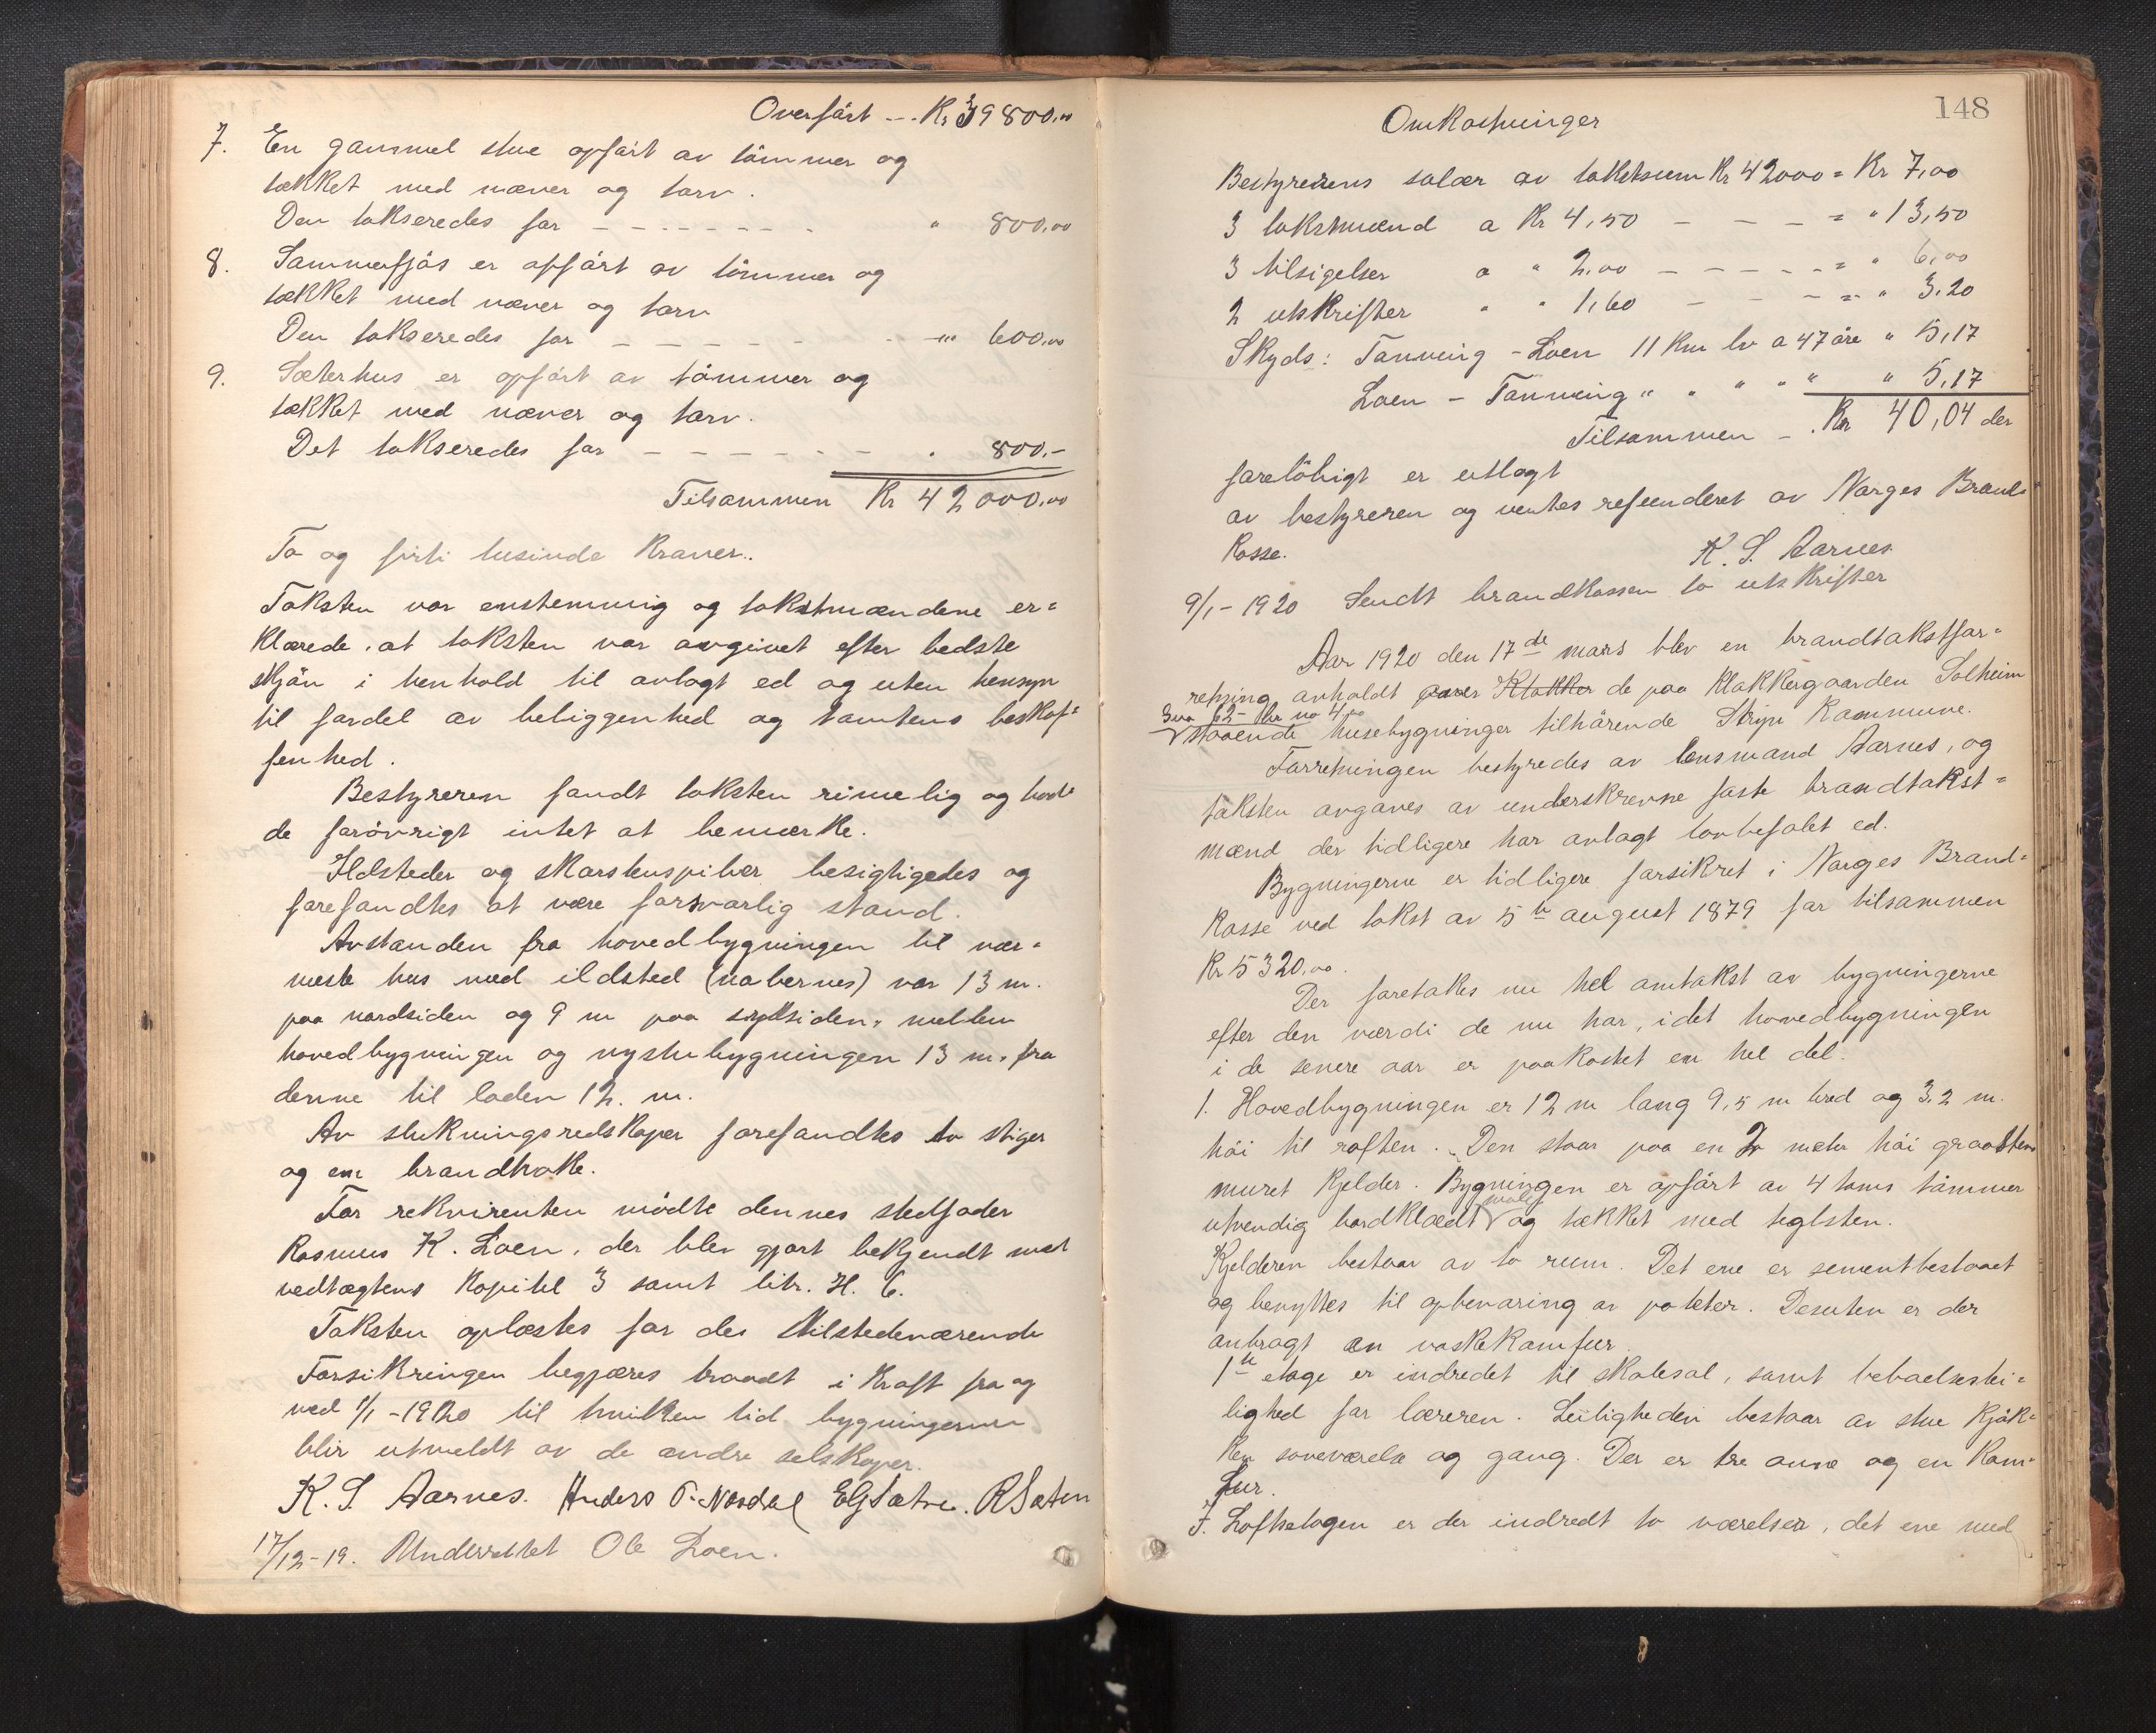 Overført -- Kr 39800,00
7. En gammel stue opført av tømmer og
tækket med næver og torv.
Den takseredes for - - - - - - - " 800,00
8. Sommerfjøs er opført av tømmer og
tækket med næver og torv
Den takseredes for - - - - - - - " 600,00
9. Sæterhus er opført av tømmer og
tækket med næver og torv.
Det takseredes for - - - - - - - . 800.-
Tilsammen Kr 42000,00
To og firti tusinde kroner..
Taksten var enstemmig og takstmændene er=
klærede at taksten var avgivet efter bedste
skjøn i henhold til avlagt ed og uten hensyn
til fordel av beliggenhed og tomtens beskaf=
fenhed.
Bestyreren fandt taksten rimelig og had=
de forøvrigt intet at bemerke.
Ildsteder og skorstenspiber besigtigedes og
forefandtes at være forsvarlig stand.
Avstanden fra hovedbygningen til nær=
meste hus med ildsted (nabernes) var 13 m.
paa nordsiden og 9 m paa sydsiden, mellem
hovedbygningen og nystubygningen 13 m. fra
denne til laden 12. m.
Av slukningsredskaper forefandtes to stiger
og en brandhake.
For rekvirenten mødte dennes stedfader
Rasmus K. Loen, der blev gjort bekjendt med
vedtægtens Kapitel 3 samt litr. H. 6.
Taksten oplæstes for des tilstedeværende
Forsikringen begjæres traadt i kraft fra og
med 1/1-1920 til hvilken tid bygningerne
blir utmeldt av de andre selskaper.
K. S. Aarnes. Anders P. Nesdal EGSætre. RSæten
17/12-19. Underrettet Ole Loen.
148
Omkostninger
Bestyrerens salær av takstsum Kr 42000 = Kr 7,00
3 takstmænd a Kr 4,50 - - - = " 13,50
3 tilsigelser a " 2,00 - - - - - = " 6,00
2 utskrifter " " 1,60 - - - = " 3,20
Skyds: Tonning - Loen 11 Km lv a 47 øre " 5,17
Loen - Tonning " " " " " " 5,17
Tilsammen - . Kr 40,04 der
foreløbigt er utlagt
av bestyreren og ventes refunderet av Norges Brand=
kasse.
K. S. Aarnes
9/1-1920 Sendt brandkassen to utskrifter
Aar 1920 den 17de mars blev en brandtakstfor=
retning avholdt over Klokker de paa Klokkergaarden Solheim
62- br no 4
staaende husebygninger tilhørende Stryn Kommune.
Forretningen bestyredes av lensmand Aarnes, og
taksten avgaves av underskrevne faste brandtakst=
mænd der tidligere har avlagt lovbefalet ed.
Bygningerne er tidligere forsikret i Norges Brand=
kasse ved takst av 5te august 1879 for tilsammen
Kr 5320,00.
Der foretakes nu hel omtakst av bygningerne
efter den værdi de nu har, idet hovedbygningen
i de senere aar er paakostet en hel del.
1. Hovedbygningen er 12 m lang 9,5 m bred og 3,2 m.
høi til raften. Den staar paa en 2 meter høi graasten
muret kjelder. Bygningen er opført av 4 toms tømmer
utvendig bordklædt malt og tækket med teglsten.
Kjelderen bestaar av to rum. Det ene er sementbestaaet
og benyttes til opbevaring av poteter. Desuten er der
anbragt en vaskekomfur.
1te etage er indredet til skolesal, samt beboelseslei=
lighed for læreren. Leiligheden bestaar av stue kjøk=
ken soveværelse og gang. Der er tre ovne og en kom=
fur.
I. Loftsetagen er der indredt to værelser, det ene med